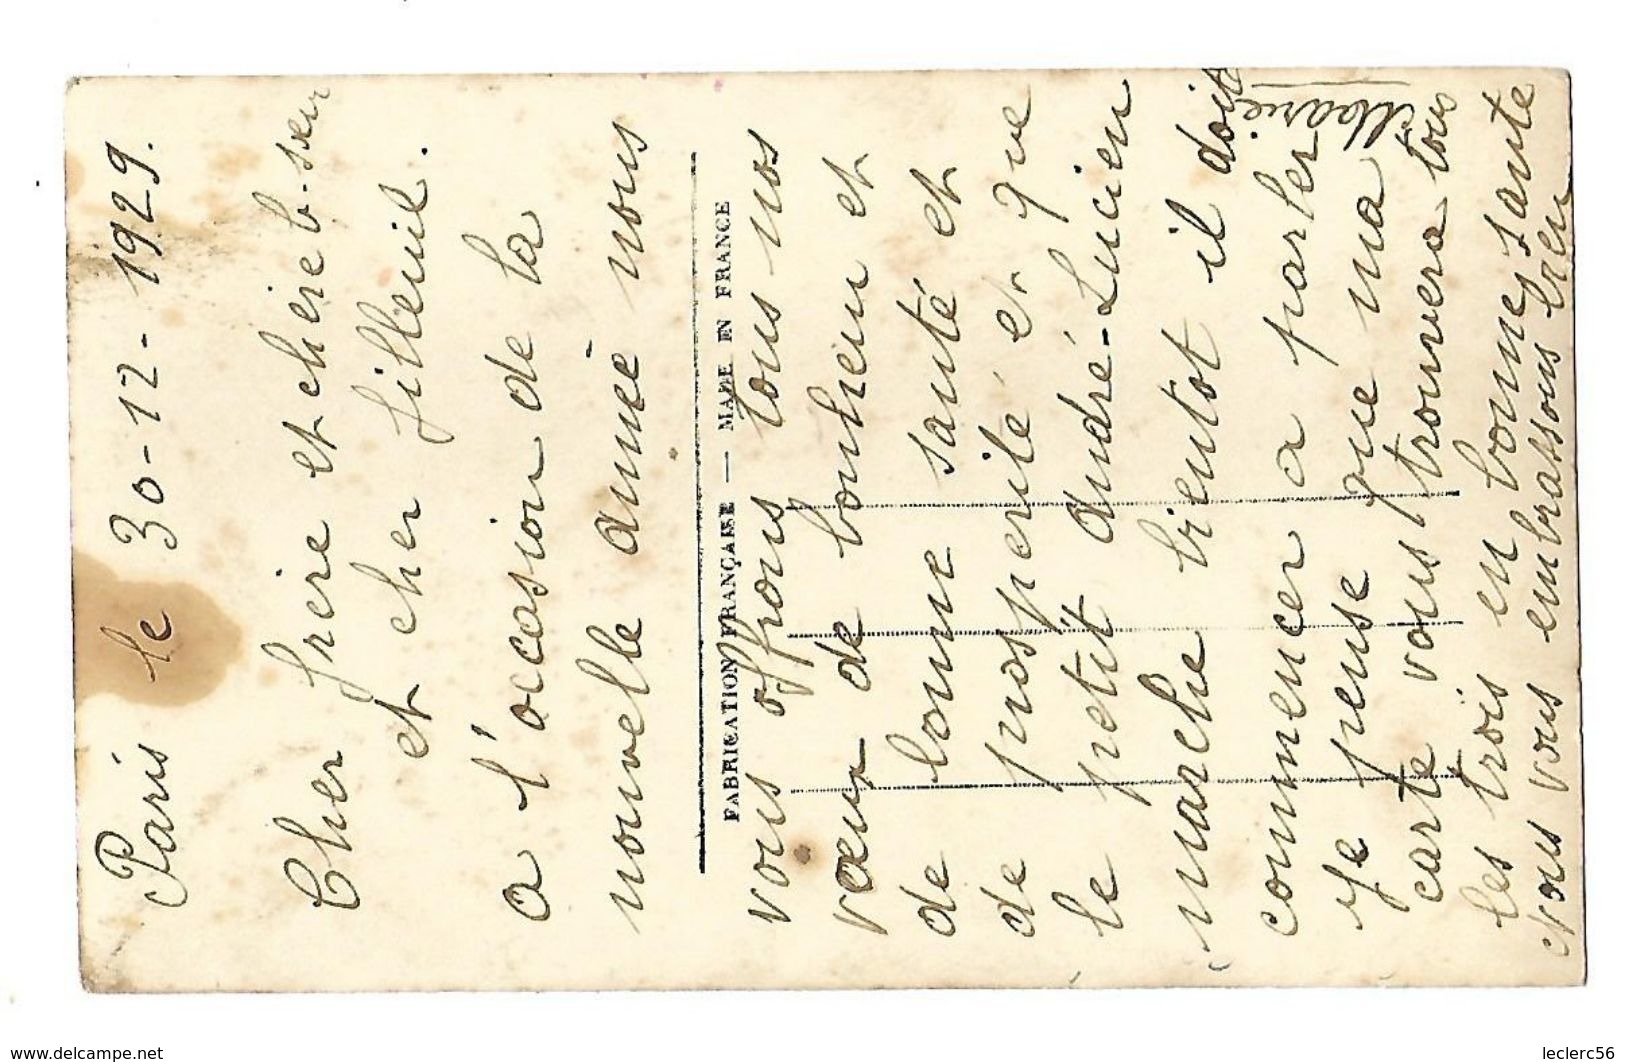 Paris le 30-12-1929.
Cher frère et chère b-sœur
et cher filleuil.
a l'occasion de la
nouvelle année nous
FABRICATION FRANÇAISE — MADE IN FRANCE
vous offrons tous nos
vœux de bonheur et
de bonne santé et
de prosperité et que
le petit André-Lucien
marche bientot il doit
commencer a parler
Je pense que ma
carte vous trouvera tous
les trois en bonne sante
nous vous embrassons bien
Marie
www.delcampe.net
leclerc56